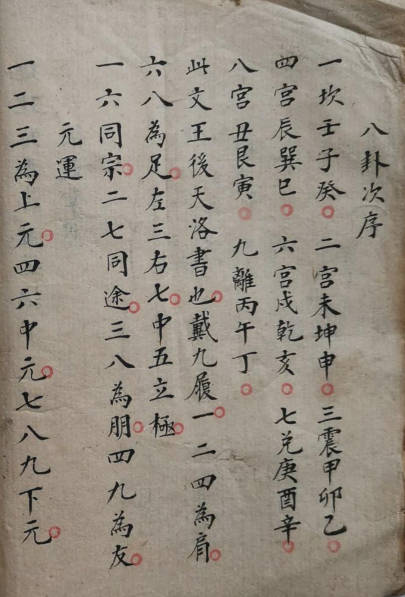 八卦次序
一坎壬子癸。二宮未坤申。三震甲卯乙。
四宮辰巽巳。六宮戌乾亥。七兌庚酉辛。
八宮丑艮寅。九離丙午丁。
此文王後天洛書也。戴九履一。二四為肩。
六八為足。左三右七。中五立極。
一六同宗。二七同途。三八為朋。四九為友。
元運
一二三為上元。四六中元。七八九下元。